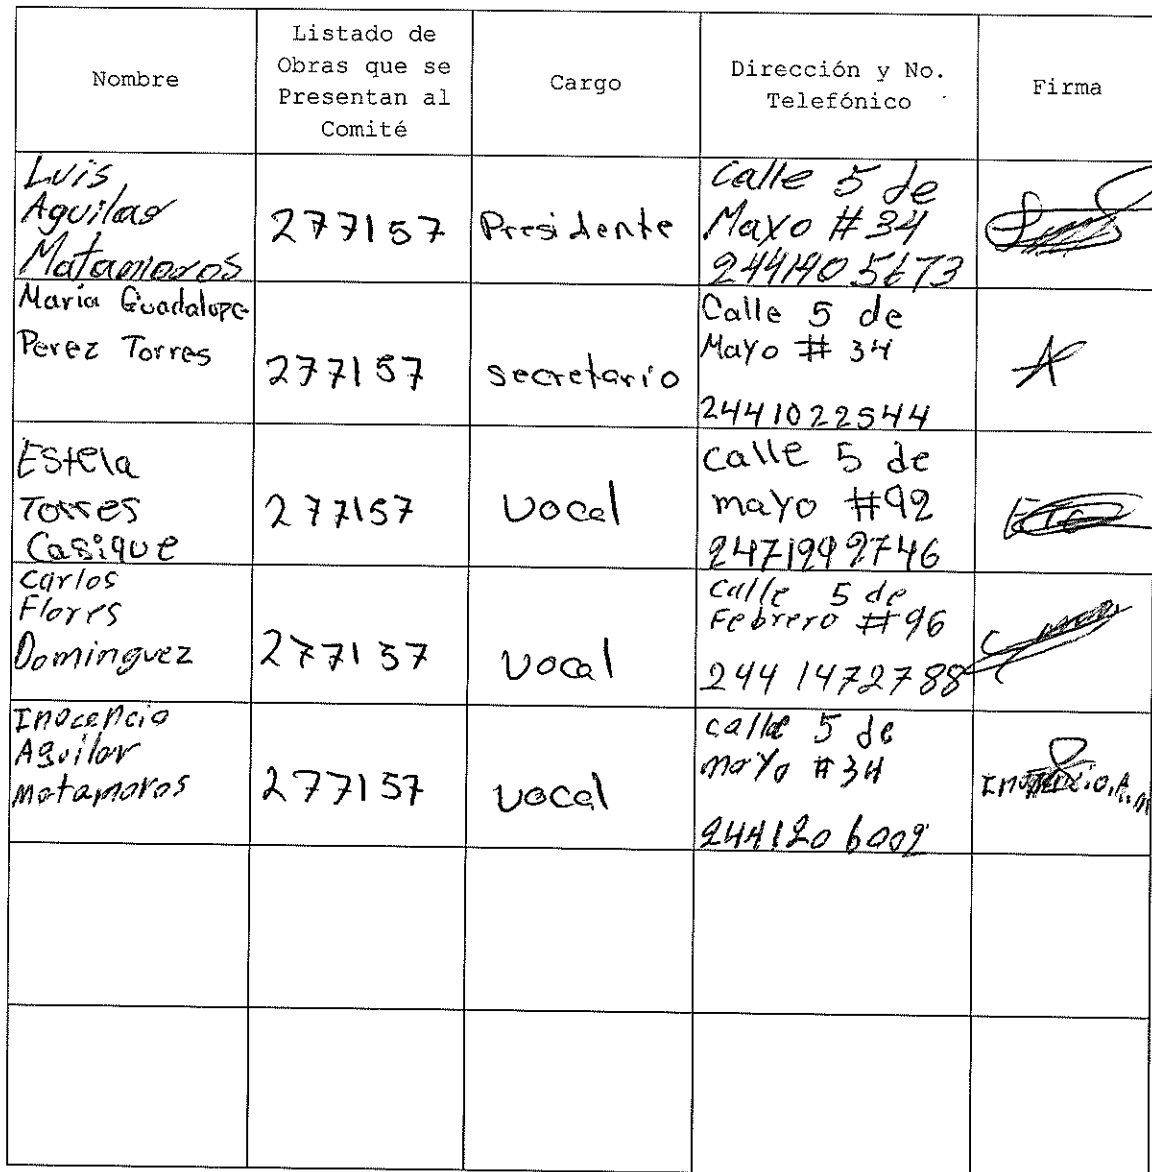 Nombre
Listado de
Obras que se
Presentan al
Comité
Cargo
Dirección y No.
Telefónico
Firma
Luis
Aguilar
Matamoros
277157
Presidente
Calle 5 de
Mayo #34
2441405673
Maria Guadalupe
Perez Torres
277157
secretario
Calle 5 de
Mayo # 34
2441022544
Estela
Torres
Casique
277157
vocal
calle 5 de
mayo #92
2471992746
Carlos
Flores
Dominguez
277157
vocal
calle 5 de
Febrero #96
244 1472788
Inocencio
Aguilar
matamoros
277157
vocal
calle 5 de
mayo #34
2441206002